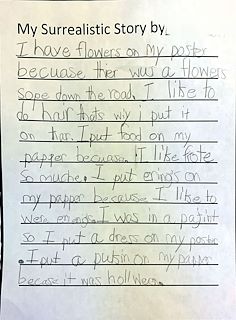 My Surrealistic Story by
I have flowers on my poster
becuase thier was a flowers
sope down the road. I like to
do hair thats wiy i put it
on thar. I put food on my
papper becuase. I like frote
so muche. I put erings on
my papper because I like to
were erings. I was in a pajint
so I put a dress on my poster
. I put a pukin on my papper
becase it was hollween.